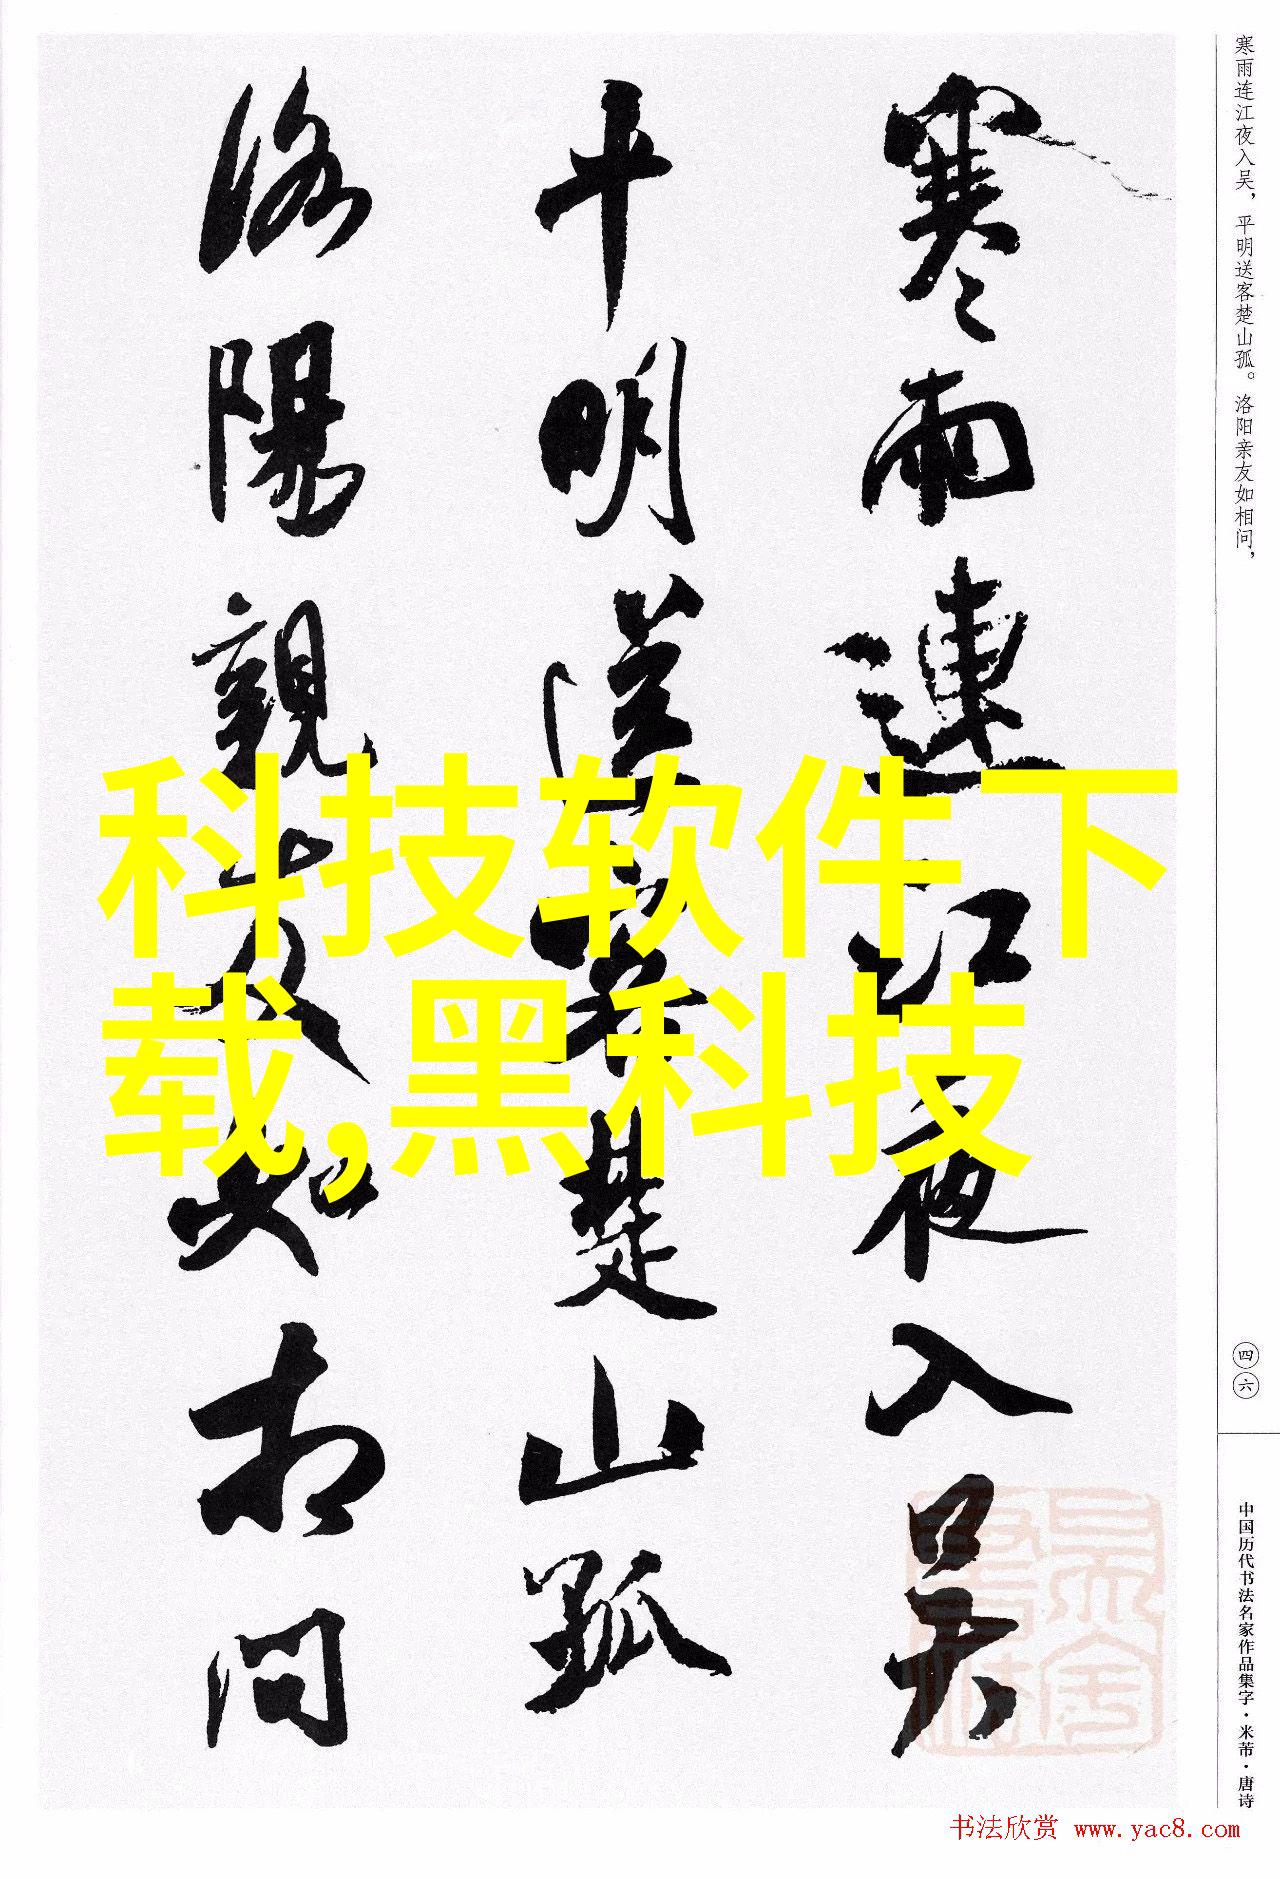 寒雨連江夜入吴
平明送客楚山孤
洛陽親友如相问
寒雨连江夜入吴，平明送客楚山孤。洛阳亲友如相问，
四六
中国历代书法名家作品集字·米芾·唐诗
科技软件下
载,黑科技
书法欣赏 www.yac8.com